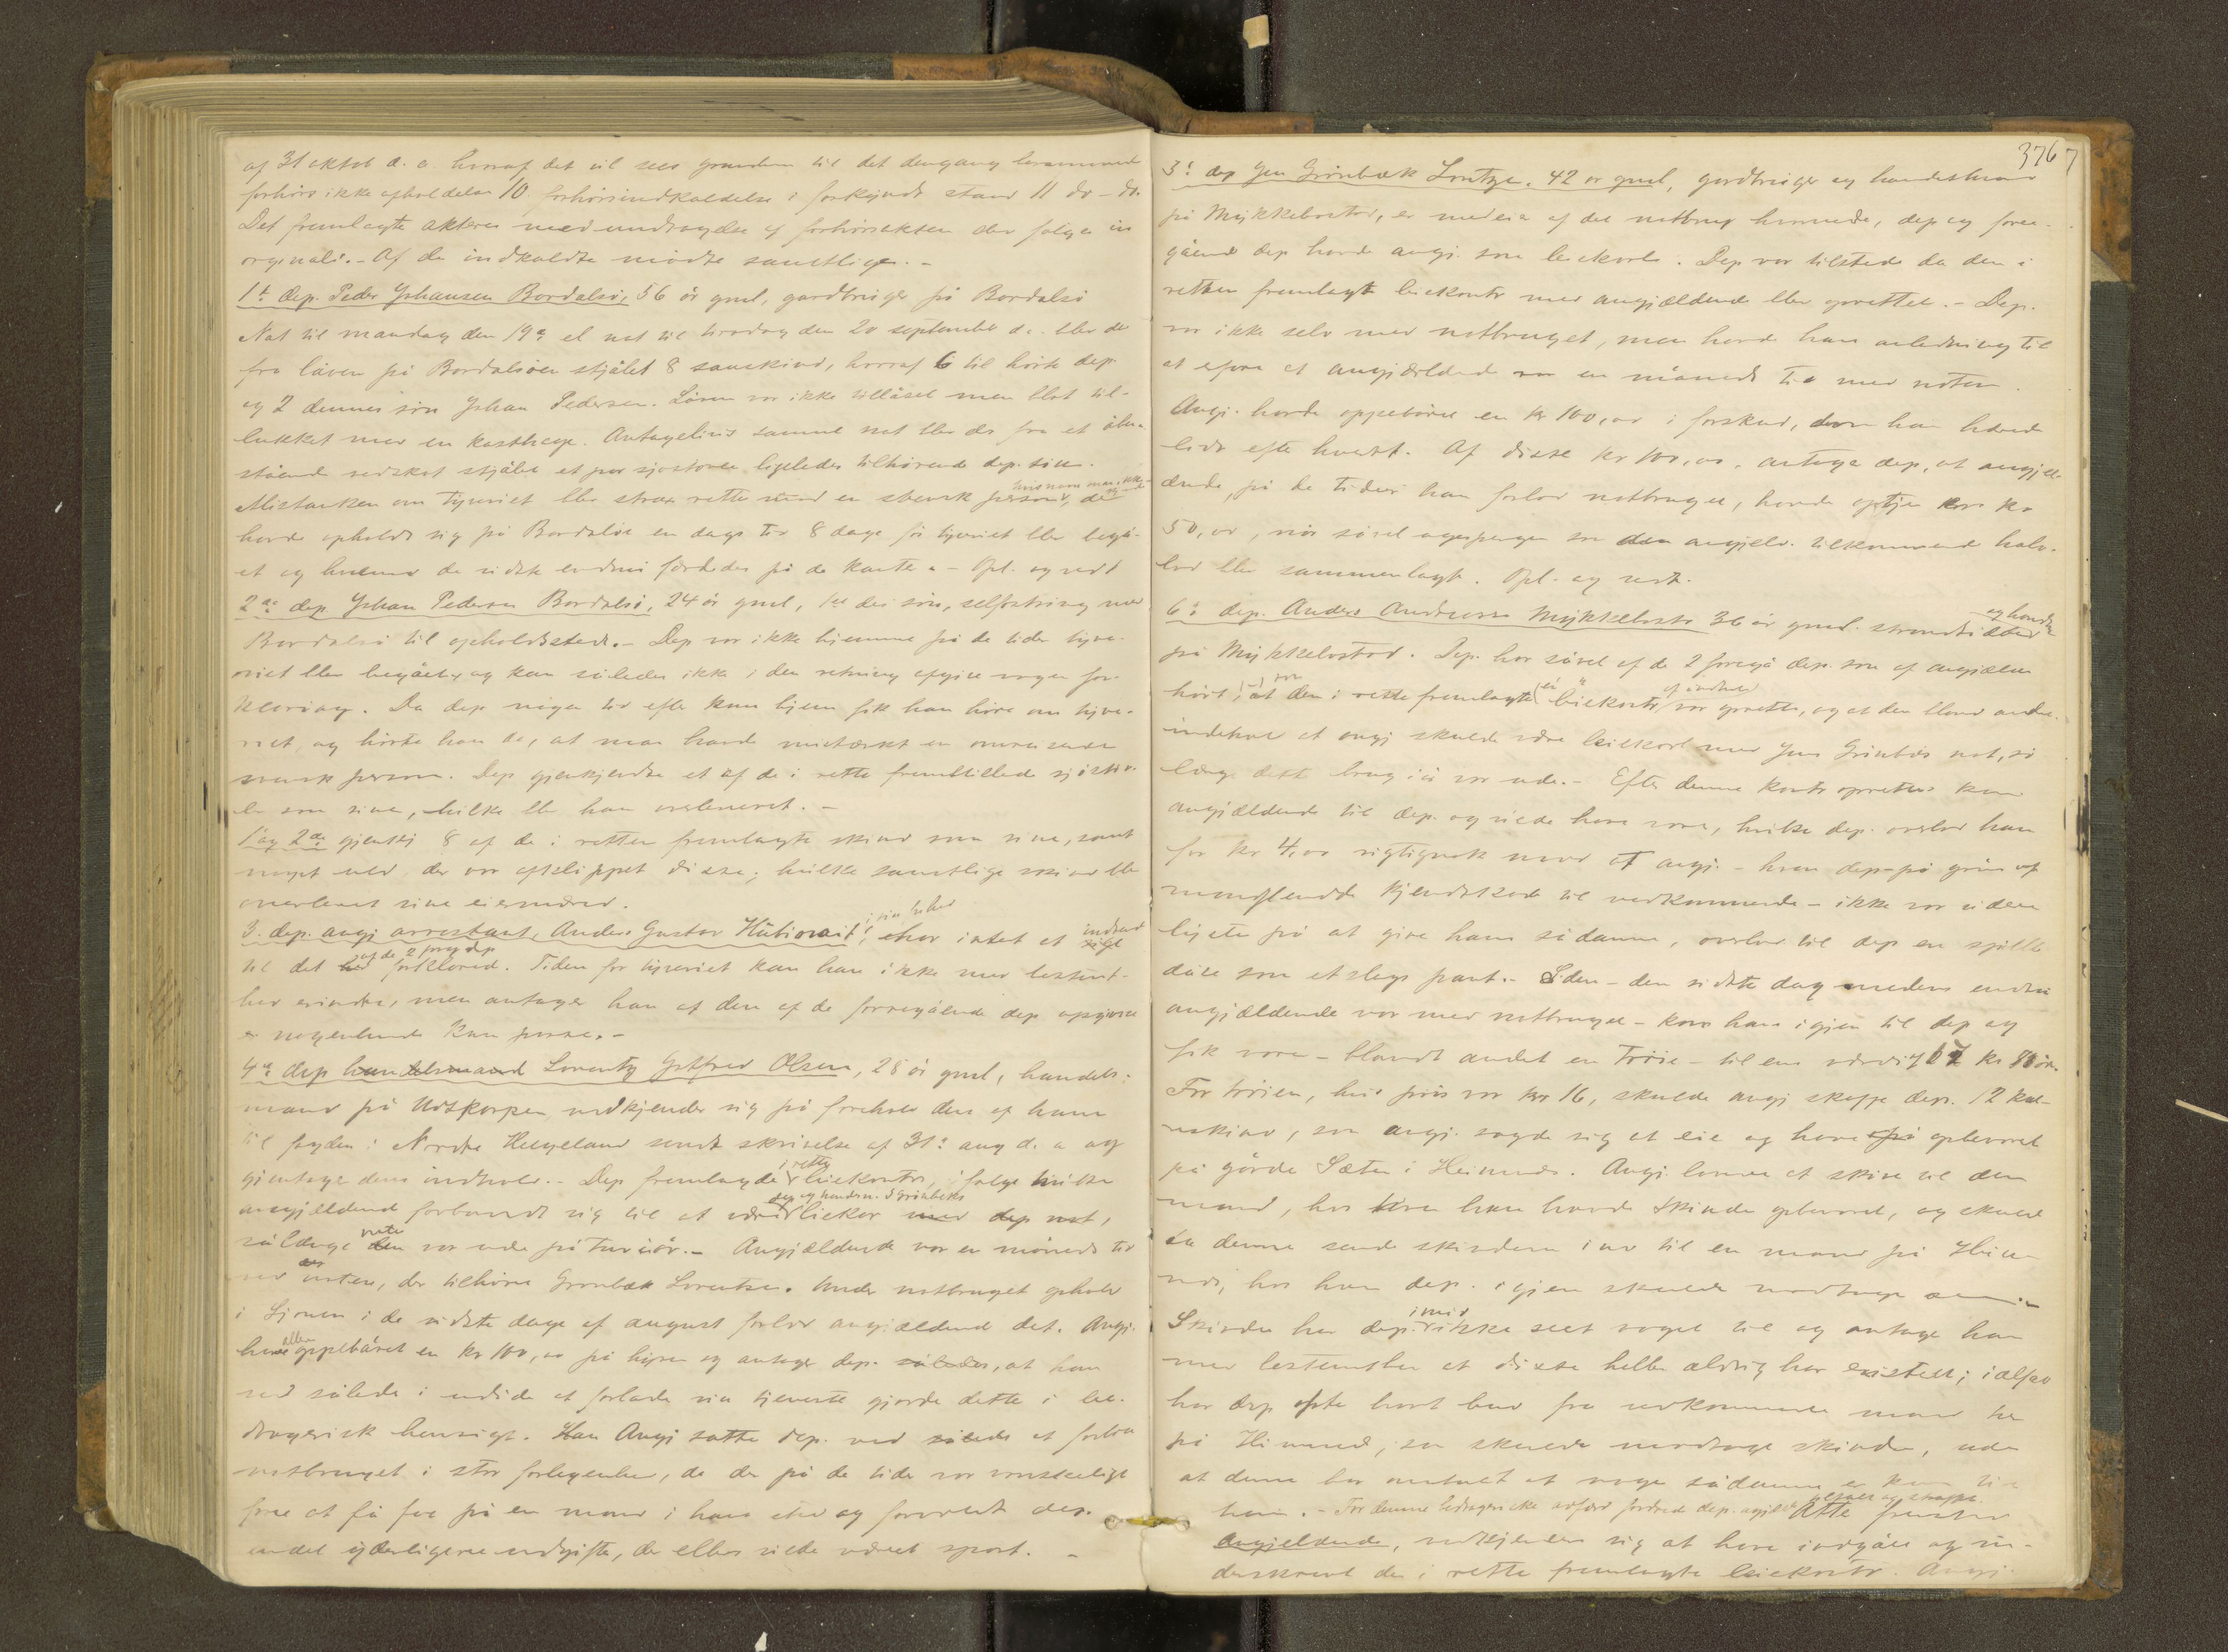 af 31 oktob d. a. hvoraf det vil sees grunden til det dengang berammede
forhørs ikke afholdelse 10 forhørsindkaldelse i forkyndt stand 11 do - do.
Det fremlagte akteres med undtagelse af forhørsakten der følger in
orginali. - Af de indkaldte mødte samtlige. -
1ste dep. Peder Johansen Bordalsø, 56 år gml, gardbruger på Bordalsø
Nat til mandag den 19de el nat til tirsdag den 20 september d. a. blev der
fra låven på Bordalsøen stjålet 8 saueskind, hvoraf 6 til hørte dep.
og 2 dennes søn Johan Pedersen. Låven var ikke tillåset men blot til-
lukket med en kasthage. Antagelivis samme nat blev der fra et åben-
stående redskot stjålet et par sjøstøvler ligeledes tilhørende dep. søn.
Mistanken om tyveriet blev strax rettet mod en svensk person, der
havde opholdt sig på Bordalsø en dags tid 8 dage før tyveriet blev begå-
et og hvem de vidste endnu færdedes på de kanter. - Opl. og vedt
2de dep Johan Pedersen Bordalsø, 24 år gml, 1ste des søn, selfostring med
Bordalsø til opholdssted. - Dep var ikke hjemme på de tider tyve-
riet blev begået, og kan således ikke i den retning afgive nogen for-
klaring. Da dep nogen tid efter kom hjem fik han høre om tyve-
riet, og hørte han da, at man havde mistænkt en omreisende
svensk person. Dep gjenkjendte et af de i rette fremstillede sjøstøv-
ler som sine, hvilke blev ham overleveret. -
1 og 2de gjenkj 8 af de i retten fremlagte skind som sine, samt
noget uld, der var afklippet disse; hvilke samtlige skind blev
overleveret sine eiermænd.
3. dep. angj arrestant, Anders Gustav i sin helhed har intet at indvende
til det af de 2 foreg dep forklared. Tiden for tyveriet kan han ikke med bestemt-
hed erindre, men antager han at den af de forregående dep opgivne
nogenlunde kan passe. -
4de dep Lorentz Gotfred Olsen, 28 år gml, handels-
mand på Utskorpen vedkjender sig på forehold den af ham
til fogden i Nordre Helgeland sendt skrivelse af 31te aug d. a og
gjentager dens indhold. - Dep fremlagde i rette leiekontra, ifølge hvilken
angjældende forbandt sig til at være leiekar
sålænge den var ude på turiår. - Angjældende var en måneds tid
ved noten, der tilhører Grønbæk Lorentzen. Under notbruget ophold
i Sjonen i de sidste dage af august forlod angjældende det. Angj.
havde oppebåret en kr 100,00 på hyren og antager dep. at han
ved således i utide at forlade sin tjeneste gjorde dette i be-
dragerisk hensigt. Angj satte dep. ved således at forlade
notbruget i stor forlegenhed, da der på de tider var vanskeligt
for at få fat på en mand i hans sted og forvoldt dep.
endel yderligere udgifter, der ellers vilde været spart. -
3767
5te dep Jens Grønbæk Lorntzn. 42 år gml, gardbruger og handelsmand
på Mykkelbostad, er medeier af det notbrug hvormed, dep og fore-
gående dep havde angj. som leiekarl. Dep var tilstede da den i
retten fremlagte leiekontr med angjældende blev oprettet. - Dep.
var ikke selv med notbruget, men havde han anledning til
at erfare at angjældende var en måneds tid med noten.
Angj. havde oppebåret en kr 100,00 i forskud,
efter hvert. Af disse kr 100,00, antager dep, at angjæl-
dende, på de tider han forlod notbruget, havde optjen kr
50,00, når såvel som angjeld. tilkommende halv-
lod blev sammenlagt. Opl. og vedt.
6te dep. Anders Andreassen Mykkelbosta 36 år gml. strandsidder og handler
på Mykkelbostad. Dep. har såvel af de 2 foregå dep. som af angjælden
hørt, at den i rette fremlagte leiekontr var oprettet, og at den bland andet
indeholdt at angj skulde være leiekarl med Jens Grønbæks not, så
længe dette brug i år var ude. - Efter denne kontr oprettelse kom
angjældende til dep. og vilde have varer, hvilke dep. overlod ham
for kr 4,00 rigtignok mod at angj. - hvem dep - på grund af
manglende kjendskab til vedkommende - ikke var videre
lysten på at give ham sådanne, overlod til dep en
dåse som et slags pant. - Siden - den sidste dag medens endnu
angjældende var med notbruget - kom han igjen til dep og
fik varer - blandt andet en trøie - til en værdi af kr
For trøien, hvis pris var kr 16, skulde angj skaffe dep. 12 kal-
veskind, som angj. sagde sig at eie og have opbevaret
på gården Sæter i Hemnes. Angj. lovede at skrive til den
mand, hos hvem han havde skindene opbevaret, og skulde
da denne sende skindene ind til en mand på Hem-
nes, hos hvem dep. igjen skulde modtage dem. -
Skindene har dep. imid ikke seet noget til og antager han
med bestemthed at disse heller aldrig har existeret; ialfald
har dep ofte havt bud fra vedkommende mand her
på Hemnes, som skulde modtage skindene, uden
at denne har omtalt at nogen sådanne er kom til
ham. - For denne bedrageriske adfærd fordred dep. angjeld tiltalt og straffet. Atter fremstod
Angjeldende, vedkjender sig at have indgået og un-
derskrevet den i rette fremlagte leiekontr. Angj.